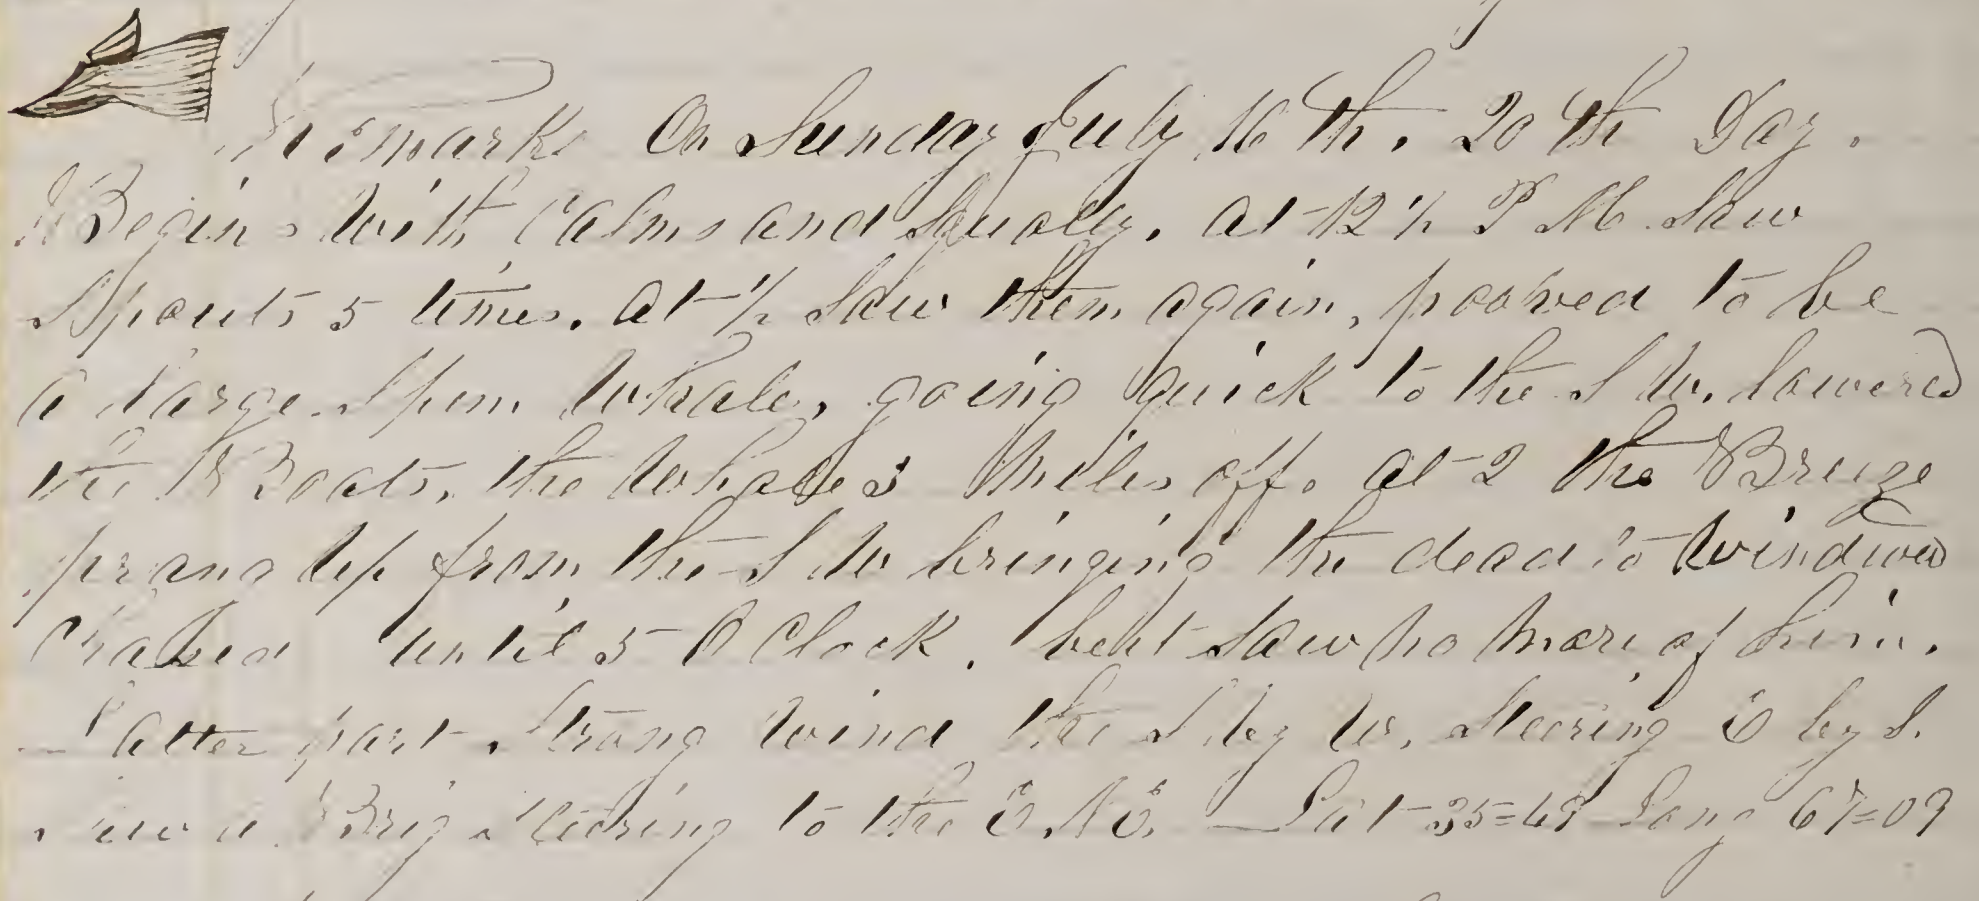 Remarks On Sunday July 16th. 20th Day.
Begins with Calms and Squally. at 12 ½ P M. Saw
Spouts 5 times. at ½ Saw them again, prooved to be
a Large Sperm Whale, going quick to the S W. Lowered
the Boats, the Whale 3 Miles off. at 2 the Breeze
sprang up from the S W bringing the dead to Windwd
Chased until 5 O Clock. but Saw no More of him.
Latter part Strong Wind the S by W. Steering E by S.
Saw a Brig Steering to the E.N.E. Lat 35=49 Long 67=09